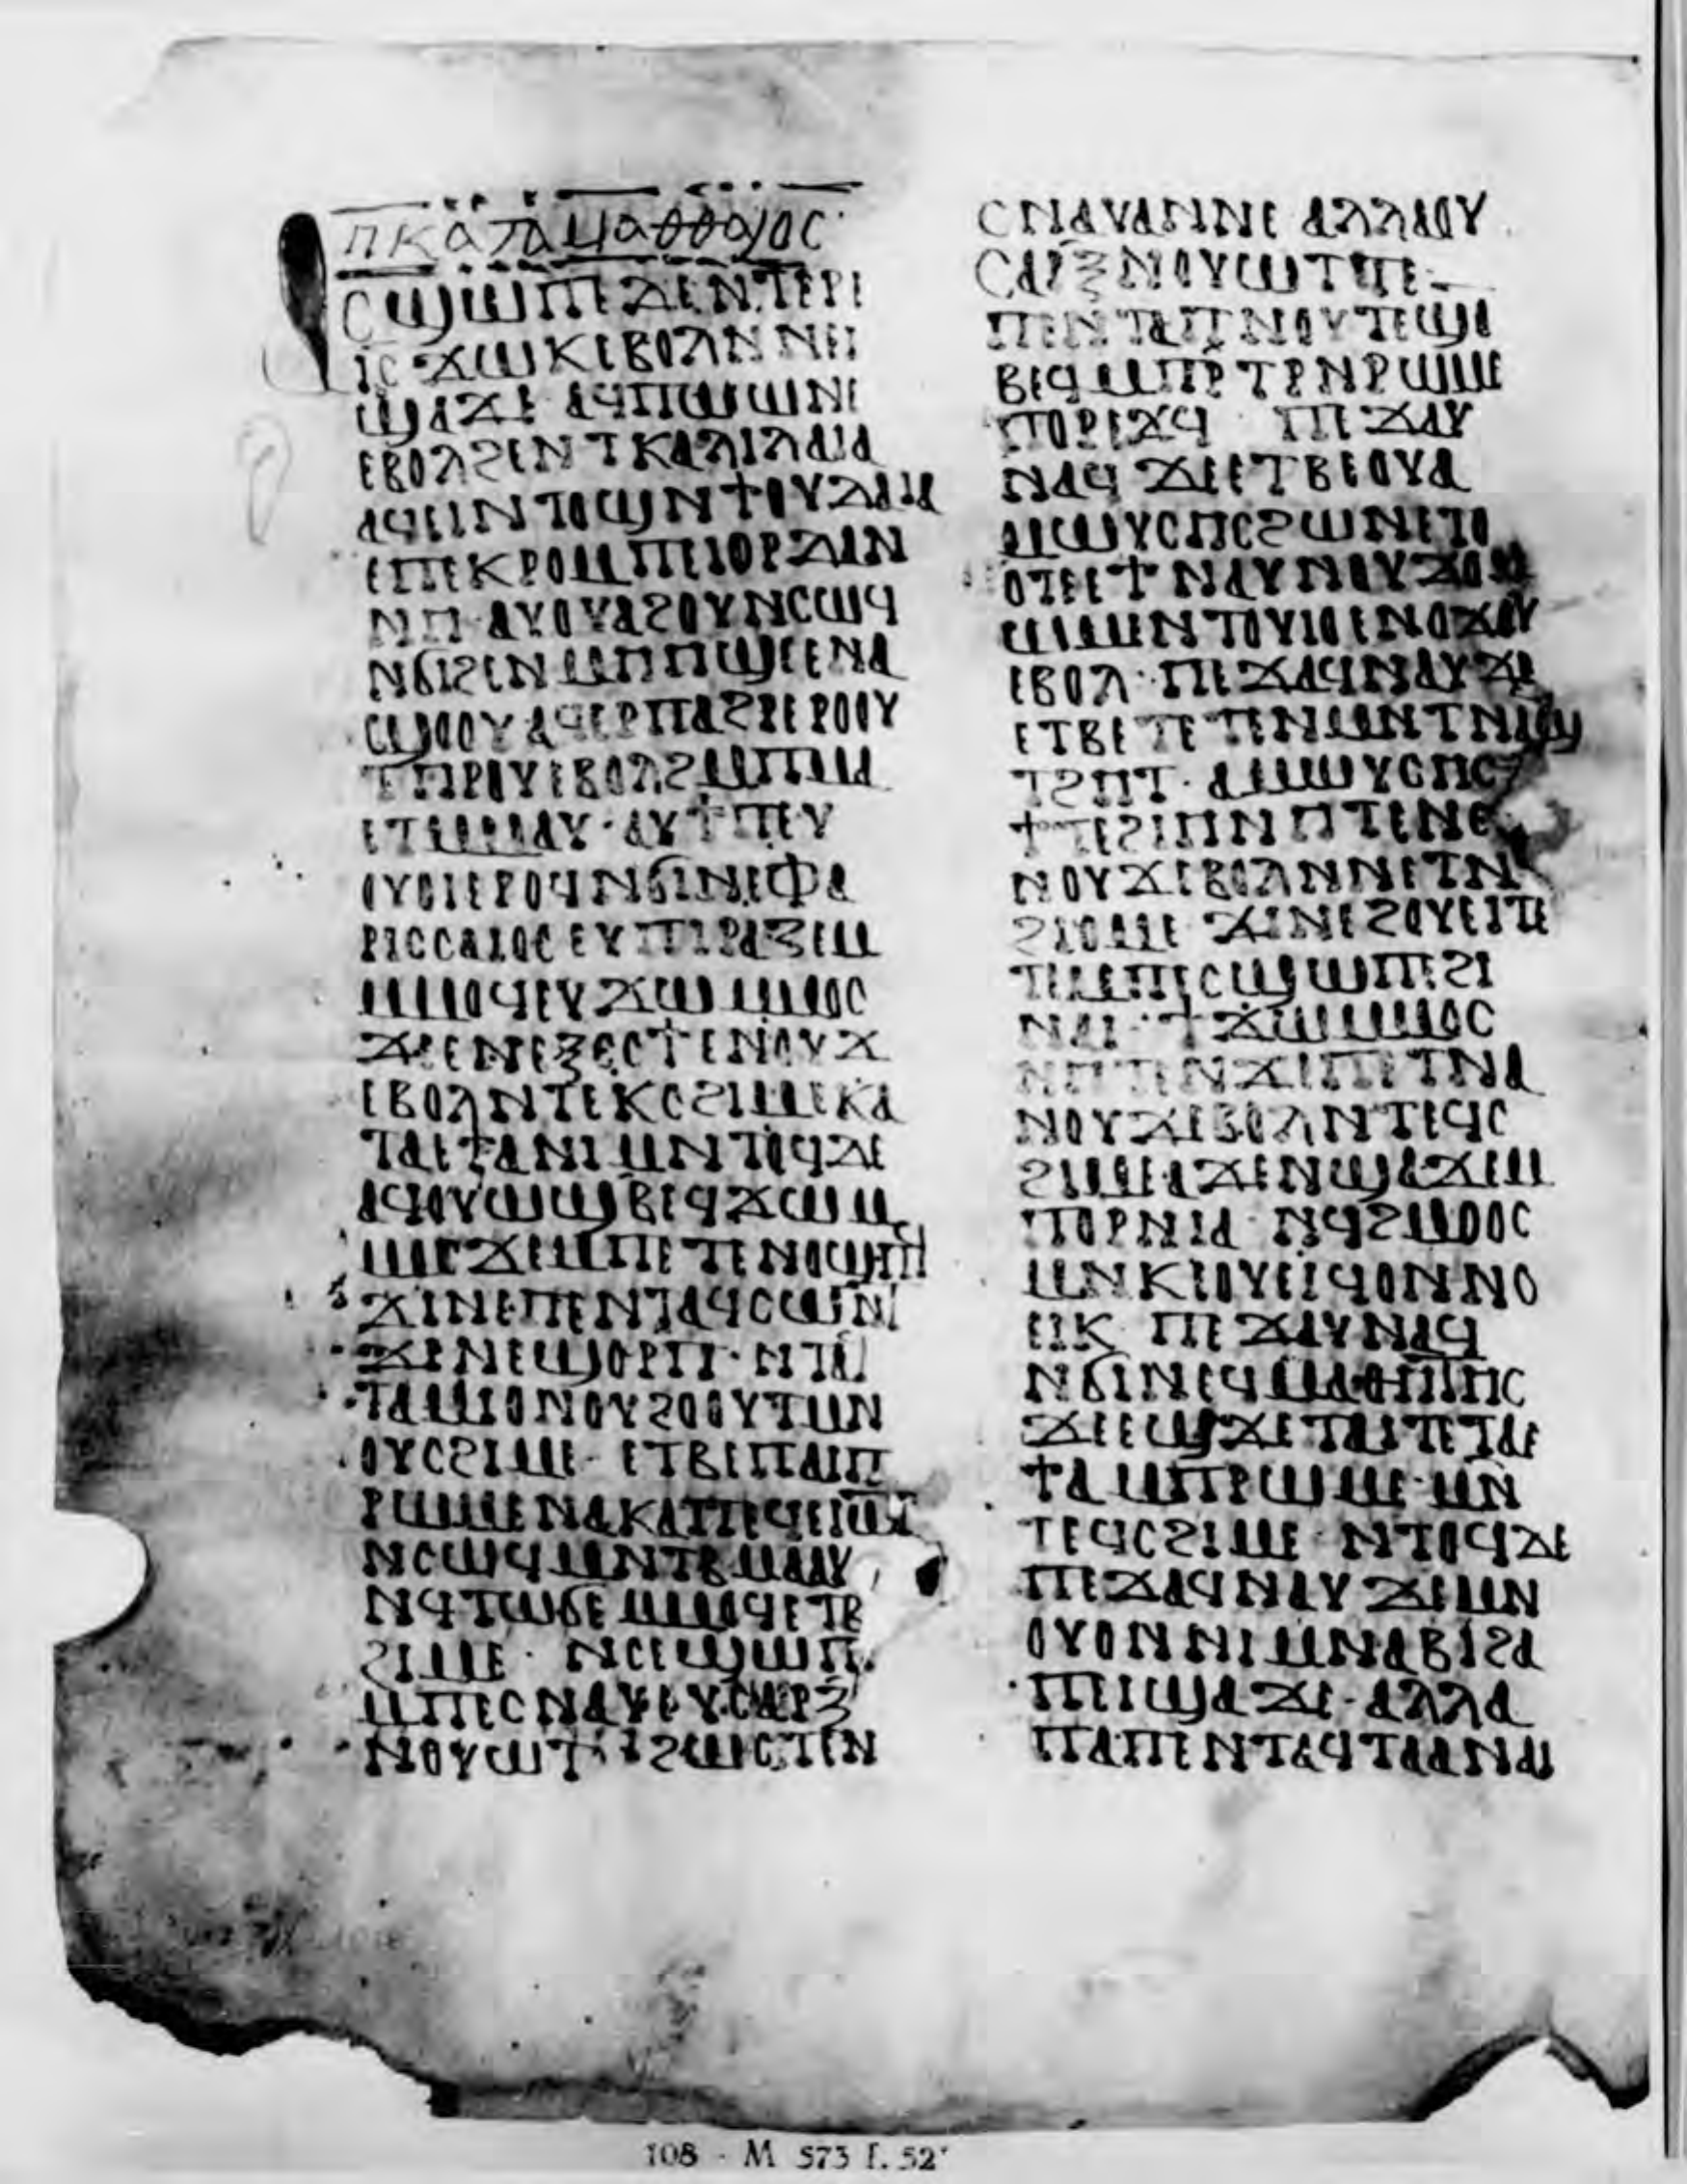 ⲡⲕⲁⲧⲁⲙⲁⲑⲑⲁⲓⲟⲥ
ⲥϣⲱⲡⲉ ⲇⲉ ⲛⲧⲉⲣⲉ
ⲓⲥ ϫⲱⲕ ⲉⲃⲟⲗ ⲛⲛⲉⲓ
ϣⲁϫⲉ ⲁϥⲡⲱⲱⲛⲉ
ⲉⲃⲟⲗϩⲉⲛ ⲧⲕⲁⲗⲓⲗⲁⲓⲁ
ⲁϥⲉⲓ ⲛⲧⲟϣ ⲛϯⲟⲩⲇⲁⲓⲁ
ⲉⲡⲉⲕⲣⲟ ⲙⲡⲉⲓⲟⲣⲇⲁⲛ
ⲛⲏ ⲁⲩⲟⲩⲁϩⲟⲩ ⲛⲥⲱϥ
ⲛϭⲓϩⲉⲛⲙⲏⲏϣⲉ ⲉⲛⲁ
ϣⲱⲟⲩ ⲁϥⲉⲣⲡⲁϩⲣⲉ ⲉⲣⲟⲟⲩ
ⲧⲏⲣⲟⲩ ⲉⲃⲟⲗϩⲙⲡⲙⲁ
ⲉⲧⲙⲙⲁⲩ· ⲁⲩϯⲡⲉⲩ
ⲟⲩⲟⲓ ⲉⲣⲟϥ ⲛϭⲓⲛⲉⲫⲁ
ⲣⲓⲥⲥⲁⲓⲟⲥ ⲉⲩⲡⲓⲣⲁⲍⲉ ⲙ
ⲙⲙⲟϥ ⲉⲩϫⲱ ⲙⲙⲟⲥ
ϫⲉⲉⲛⲉⲝⲉⲥϯ ⲉⲛⲟⲩϫ
ⲉⲃⲟⲗ ⲛⲧⲉⲕⲥϩⲓⲙⲉ ⲕⲁ
ⲧⲁ ⲉⲧⲁⲛⲓⲙ ⲛⲧⲟϥ ⲇⲉ
ⲁϥⲟⲩⲱϣⲃⲉϥϫⲱ ⲙ
ⲙⲟⲥ ϫⲉⲙⲡⲉⲧⲉⲛⲟϣ
ϫⲓⲛⲉⲡⲉⲛⲧⲁϥⲥⲱⲛⲧ
ϫⲓⲛⲉϣⲟⲣⲡ· ⲛⲧⲁϥ
ⲧⲁⲙⲓⲟⲛ ⲟⲩϩⲟⲟⲩⲧ ⲙⲛ
ⲟⲩⲥϩⲓⲙⲉ· ⲉⲧⲃⲉⲡⲁⲓ ⲡ
ⲣⲱⲙⲉ ⲛⲁⲕⲁⲡⲉϥⲉⲓⲱⲧ
ⲛⲥⲱϥ ⲙⲛⲧⲃⲙⲁⲁⲩ
ⲛϥⲧⲱϭⲉ ⲙⲙⲟϥ ⲉⲧⲃ
ϩⲓⲙⲉ· ⲛⲥⲉϣⲱⲡ
ⲙⲡⲉⲥⲛⲁⲩ ⲉⲩⲥⲁⲣⲝ
ⲛⲟⲩⲱⲧ· ϩⲱⲥⲧⲉ ⲛ
ⲥⲛⲁⲩ ⲁⲛ ⲛⲉ ⲁⲗⲗⲁ ⲟⲩ
ⲥⲁⲣⲝ ⲛⲟⲩⲱⲧ ⲧⲉ
ⲡⲉⲛⲧⲁⲡⲛⲟⲩⲧⲉ ϣⲟ
ⲃⲉϥ ⲙⲡⲣⲧⲣⲛⲣⲱⲙⲉ
ⲡⲟⲣⲉϫϥ ⲡⲉϫⲁⲩ
ⲛⲁϥ ϫⲉ ⲉⲧⲃⲉⲟⲩ ⲁ
ⲙⲱⲩⲥⲏⲥ ϩⲱⲛ ⲉⲧⲟ
ⲟⲧⲉ ⲉϯ ⲛⲁⲩ ⲛⲟⲩϫⲱ
ⲱⲙⲉ ⲛⲧⲟⲩⲓⲟ ⲉⲛⲟϫⲟⲩ
ⲉⲃⲟⲗ· ⲡⲉϫⲁϥ ⲛⲁⲩ ϫⲉ
ⲉⲧⲃⲉ ⲧⲉⲧⲉⲛⲙⲛⲧⲛⲁϣ
ⲧϩⲏⲧ· ⲁⲙⲱⲩⲥⲏⲥ
ϯⲡⲉϩⲓⲏ ⲛⲏⲧⲉⲛ ⲉ
ⲛⲟⲩϫ ⲉⲃⲟⲗ ⲛⲛⲉⲧⲛ
ϩⲓⲟⲙⲉ ϫⲓⲛⲉϩⲟⲩⲉⲓⲧⲉ
ⲇⲉ ⲙⲡⲉⲥϣⲱⲡⲉ ϩⲓ
ⲛⲁⲓ· ϯϫⲱ ⲙⲙⲟⲥ
ⲛⲏⲧⲉⲛ ϫⲉⲡⲉⲧⲛⲁ
ⲛⲟⲩϫ ⲉⲃⲟⲗ ⲛⲧⲉϥⲥ
ϩⲓⲙⲉ ⲁϫⲉⲛϣⲁϫⲉ ⲙ
ⲡⲟⲣⲛⲓⲁ ⲛϥϩⲙⲟⲟⲥ
ⲙⲛⲕⲉⲟⲩⲉⲓ ϥⲟⲛⲛⲟ
ⲉⲓⲕ ⲡⲉϫⲁⲩ ⲛⲁϥ
ⲛϭⲓⲛⲉϥⲙⲁⲑⲏⲧⲏⲥ
ϫⲉ ⲉϣϫⲉ ⲧⲁⲓ ⲧⲉ ⲧⲁⲉ
ϯⲁ ⲙⲡⲣⲱⲙⲉ ⲙⲛ
ⲧⲉϥⲥϩⲓⲙⲉ ⲛⲧⲟϥ ⲇⲉ
ⲡⲉϫⲁϥ ⲛⲁⲩ ϫⲉ ⲙⲛ
ⲟⲩⲟⲛ ⲛⲓⲙ ⲛⲁⲃⲓ ϩⲁ
ⲡⲉⲓϣⲁϫⲉ· ⲁⲗⲗⲁ
ⲡⲁⲡⲉⲛⲧⲁϥⲧⲁⲁ ⲛⲁϥ
108 - M 573 f. 52ʳ